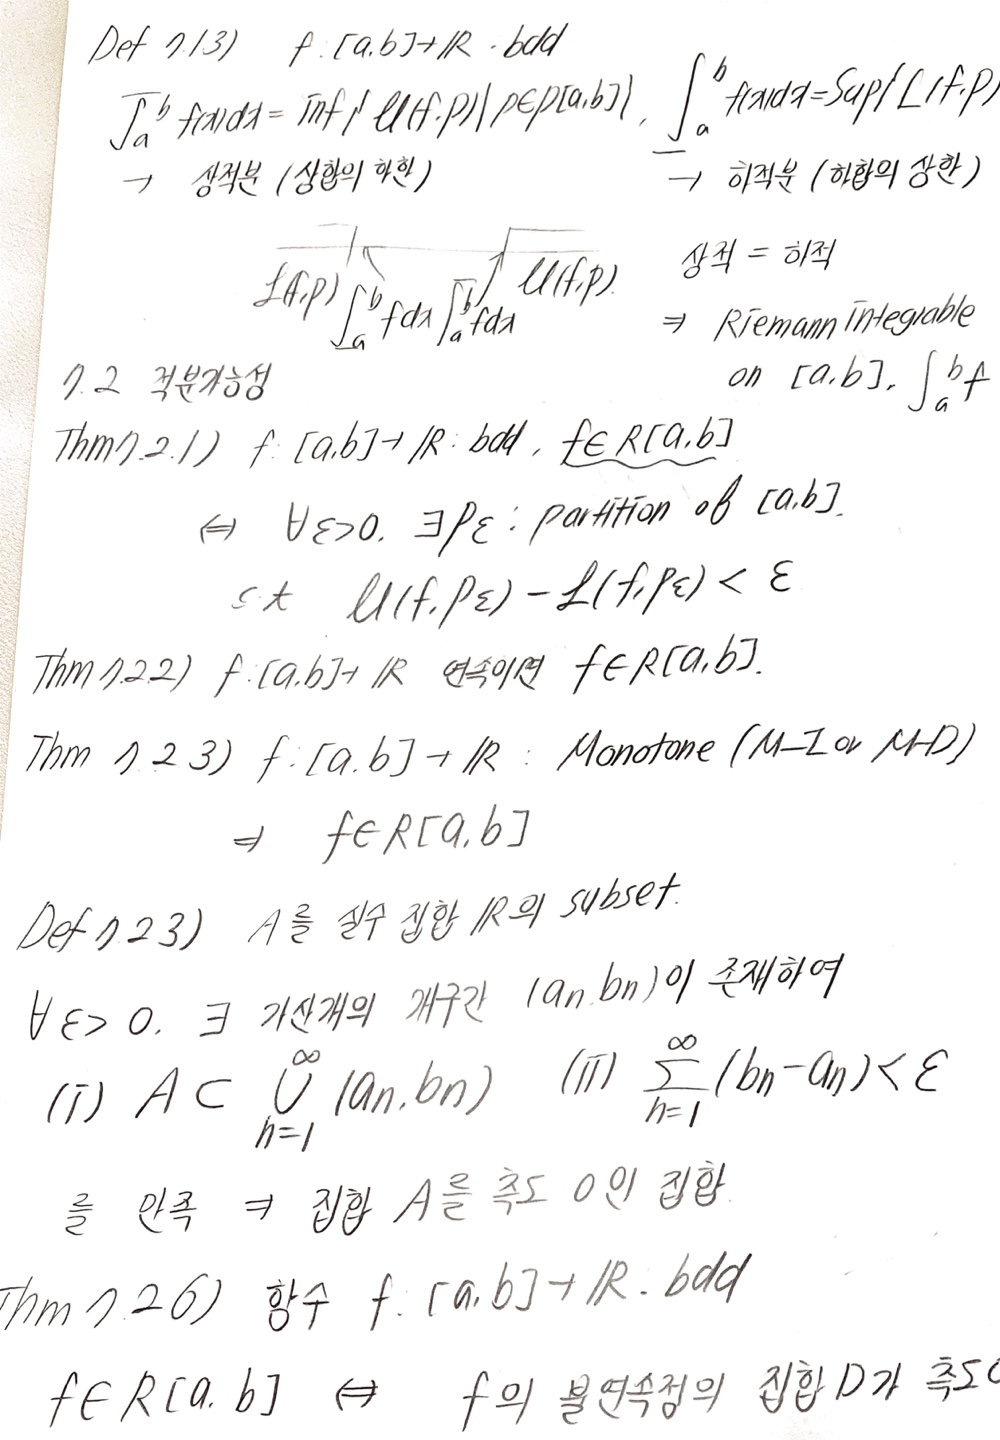 Def 7.1.3) f: [a,b]→ℝ. bdd
∫̄ₐᵇ f(x)dx = inf{ U(f,p) | p∈p[a,b]}, ∫̲ₐᵇ f(x)dx = sup{ L(f,p)
→ 상적분 (상합의 하한) → 하적분 (하합의 상한)
L(f,p) ∫̲ₐᵇ fdx ∫̄ₐᵇ fdx U(f,p). 상적 = 하적
⇒ Riemann integrable
on [a,b], ∫ₐᵇ f
7.2 적분가능성
Thm 7.2.1) f: [a,b]→ℝ: bdd, f∈R[a,b]
⇔ ∀ε>0. ∃pε: partition of [a,b].
s.t U(f,pε) - L(f,pε) < ε
Thm 7.2.2) f: [a,b]→ℝ 연속이면 f∈R[a,b].
Thm 7.2.3) f: [a,b]→ℝ: Monotone (M-I or M-D)
⇒ f∈R[a,b]
Def 7.2.3) A를 실수 집합 ℝ의 subset.
∀ε>0. ∃ 가산개의 개구간 (an,bn)이 존재하여
(i) A⊂ ∞∪n=1 (an,bn) (ii) ∞∑n=1 (bn-an)<ε
를 만족 ⇒ 집합 A를 측도 0인 집합.
Thm 7.2.6) 함수 f: [a,b]→ℝ: bdd
f∈R[a,b] ⇔ f의 불연속점의 집합 D가 측도0